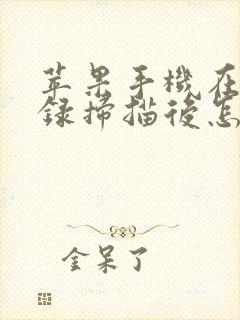 苹果手機在
録掃描後怎
金呆了